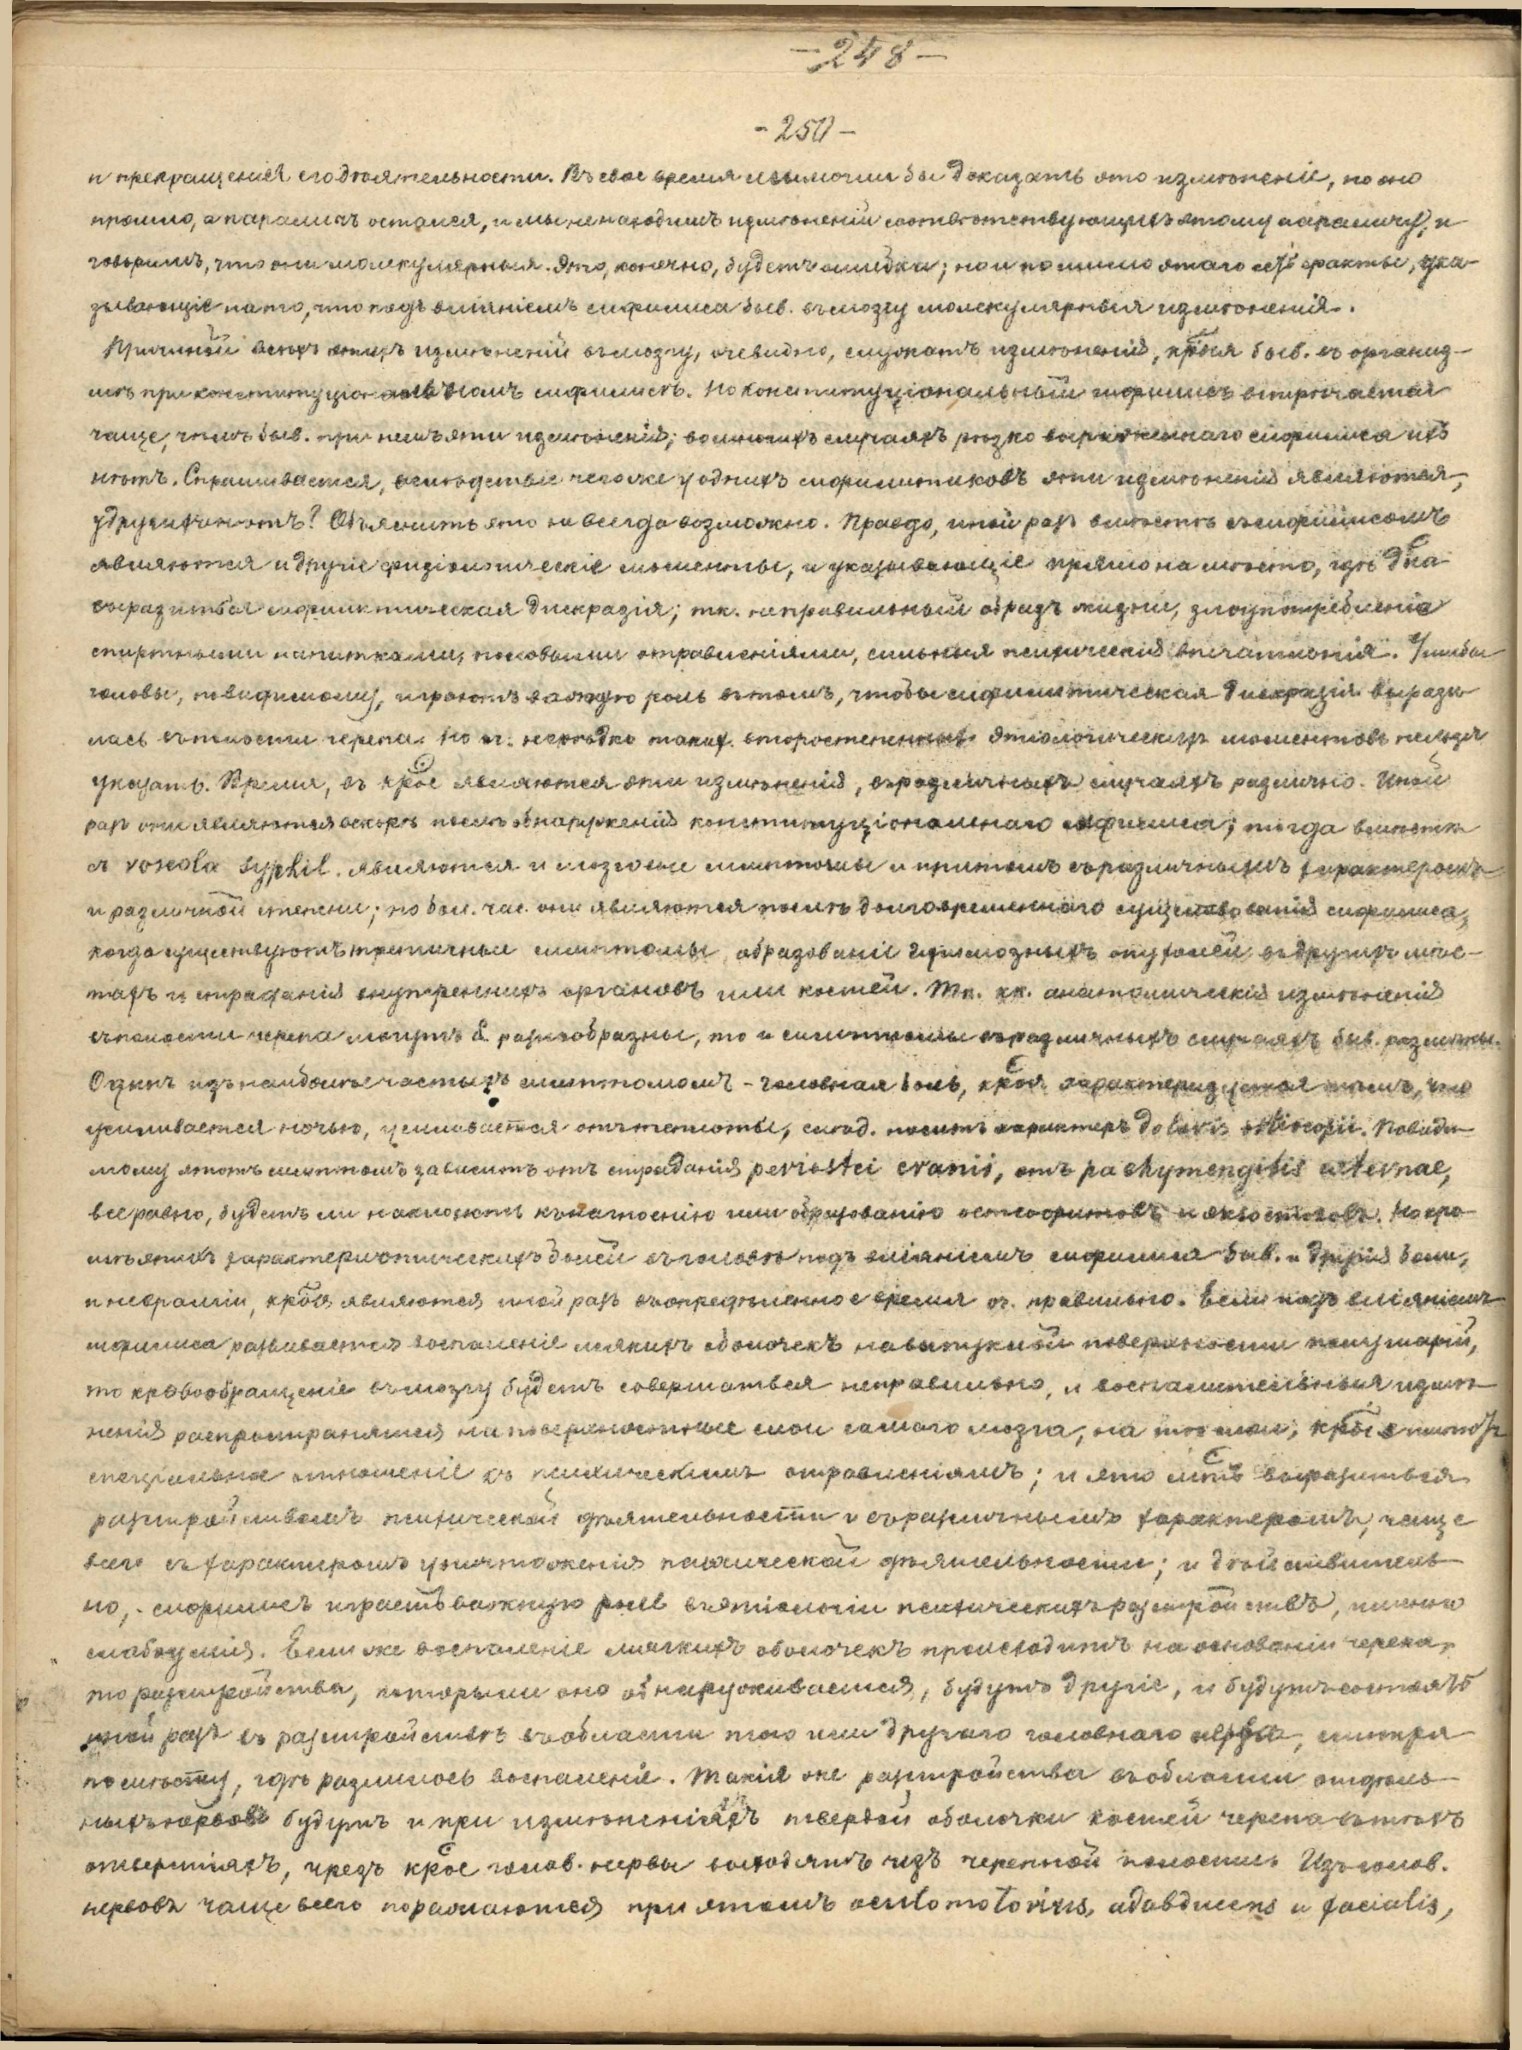 -248-
-250-
и прекращенія его дѣятельности. Въ свое время мы могли бы доказать это измѣненіе, но оно
прошло, а параличъ остался, и мы не находимъ измѣненій соотвѣтствующихъ этому параличу, и
говоримъ, что они молекулярныя. Это, конечно, будетъ ошибка; но и помимо этаго есть факты, ука-
зывающіе на то, что подъ вліяніемъ сифилиса быв. въ мозгу молекулярныя измѣненія.
Причиной всѣхъ этихъ измѣненій въ мозгу, очевидно, служатъ измѣненія, крыя быв. въ организ-
мѣ при конституціональномъ сифилисѣ. Но конституціональный сифилисъ встрѣчается
чаще, чѣмъ быв. при немъ эти измѣненія; во многихъ случаяхъ рѣзко выраженнаго сифилиса ихъ
нѣтъ. Спрашивается, вслѣдствіе чего же у однихъ сифилитиковъ эти измѣненія являются,
у другихъ нѣтъ? Объяснить это не всегда возможно. Правда, иной разъ вмѣстѣ съ сифилисомъ
являются и другіе этіологическіе моменты, и указывающіе прямо на мѣсто, гдѣ дна
выразиться сифилитическая дискразія; тк. неправильный образъ жизни, злоупотребленіе
спиртными напитками, половыми отравленіями, сильныя психическія впечатлѣнія. Ушибы
головы, повидимому, играютъ важную роль въ томъ, чтобы сифилитическая дискразія вырази-
лась въ полости черепа. Но оч. нерѣдко такихъ второстепенныхъ этіологическихъ моментовъ нельзя
указать. Время, въ крое являются эти измѣненія, въ различныхъ случаяхъ различно. Иной
разъ они являются вскорѣ послѣ обнаруженія конституціональнаго сифилиса; тогда вмѣстѣ
съ roseola syphil. являются и мозговые симптомы и притомъ съ различнымъ характеромъ
и различной степени; но бол. час. они являются послѣ долговременнаго существованія сифилиса,
когда существуютъ третичные симптомы, образованіе гуммозныхъ опухолей въ другихъ мѣс-
тахъ и страданія внутреннихъ органовъ или костей. Тк. кк. анатомическія измѣненія
въ полости черепа могутъ б. разнообразны, то и симптомы въ различныхъ случаяхъ быв. различны.
Одинъ изъ наиболѣе частыхъ симптомомъ - головная боль, края характеризуется тѣмъ, что
усиливается ночью, усиливается отъ теплоты, слѣд. носитъ характеръ doloris osteocopii. Повиди-
мому этотъ симптомъ зависитъ отъ страданія periostei cranii, отъ pachymengitis externae,
все равно, будетъ ли наклонность къ нагноенію или образованію остеофитовъ и экзостозовъ. Но кро-
мѣ этихъ характеристическихъ болей въ головѣ подъ вліяніемъ сифилиса быв. и другія боли,
и невралгіи, крыя являются иной разъ въ опредѣленное время оч. правильно. Если подъ вліяніемъ
сифилиса развивается воспаленіе мягкихъ оболочекъ на выпуклой поверхности полушарій,
то кровообращеніе въ мозгу будетъ совершаться неправильно, и воспалительныя измѣ-
ненія распространятся на поверхностные слои самаго мозга, на тѣ слои, крые имѣютъ
спеціальное отношеніе къ психическимъ отправленіямъ; и это мтъ выразиться
разстройствомъ психической дѣятельности и съ различнымъ характеромъ, чаще
всего съ характеромъ уничтоженія психической дѣятельности; и дѣйствитель-
но, сифилисъ играетъ важную роль въ этіологіи психическихъ разстройствъ, именно
слабоумія. Если же воспаленіе мягкихъ оболочекъ происходитъ на основаніи черепа,
то разстройства, которыми оно обнаруживается, будутъ другіе, и будутъ состоять
иной разъ въ разстройствѣ въ области того или другаго головнаго нерва, смотря
по мѣсту, гдѣ развилось воспаленіе. Такія же разстройства въ области отдѣль-
ныхъ нервовъ будутъ и при измѣненіяхъ твердой оболочки костей черепа въ тѣхъ
отверстіяхъ, чрезъ крые голов. нервы выходятъ изъ черепной полости. Изъ голов.
нервовъ чаще всего поражаются при этомъ oculomotorius, abducens и facialis,